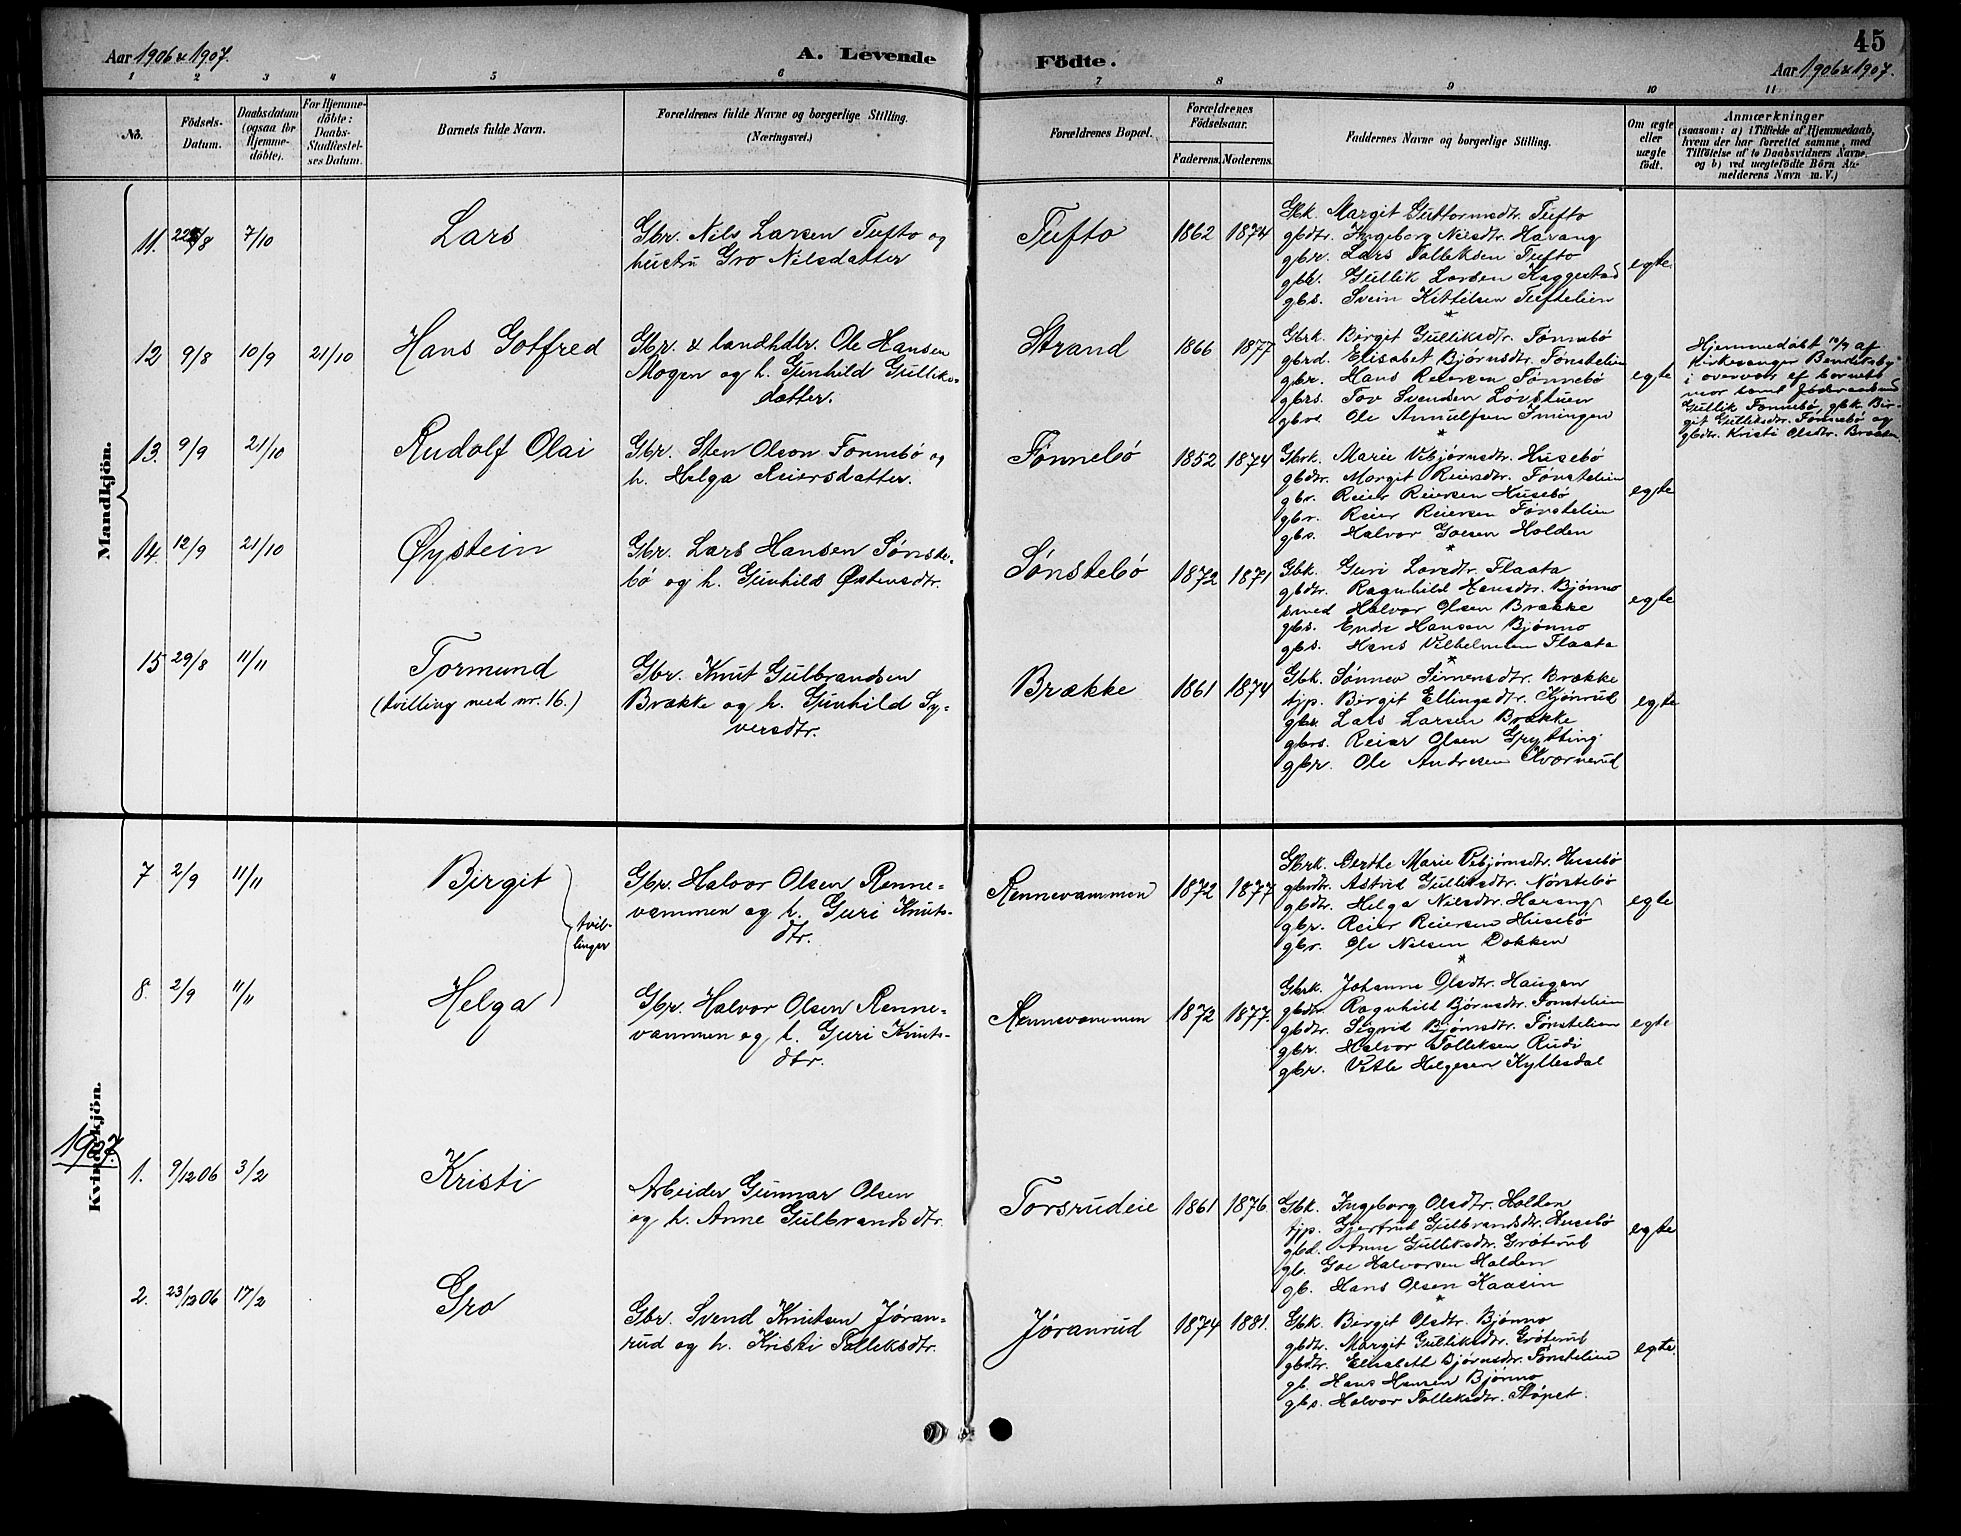 45
Aar 1906 & 1907.
A. Levende
Födte.
Aar 1906 & 1907.
1 2 3 4 5 6 7 8 9 10 11
No.
Födsels-
Datum.
Daabsdatum
(ogsaa for
Hjemme-
döbte).
For Hjemme-
döbte:
Daabs-
Stadfæstel-
ses Datum.
Barnets fulde Navn.
Forældrenes fulde Navne og borgerlige Stilling.
(Næringsvei.)
Forældrenes Bopæl.
Forældrenes
Födselsaar.
Faderens. Moderens.
Faddernes Navne og borgerlige Stilling.
Om ægte
eller
uægte
födt.
Anmærkninger
(saasom: a) i Tilfælde af Hjemmedaab,
hvem der har forrettet samme, med
Tilföielse af to Daabsvidners Navne,
og b) ved uægtefödte Börn An-
melderens Navn m. V.)
Mandkjön.
11. 22/8 7/10
Lars
Gbr. Nils Larsen Tufto og
hustru Gro Nilsdatter
Tufto
1862 1874
Gbk. Margit Guttormsdtr. Tufto
gbdtr. Ingeborg Nilsdtr. Harang
gbr. Lars Tolleksen Tufto
gbr. Gullik Larsen Kaggestad
gbs. Svein Kittilsen Tuftelien
egte.
12 9/8 10/9 21/10
Hans Gotfred
Gbr. & landhdlr. Ole Hansen
Mogen og h. Gunhild Gulliks-
datter.
Strand
1866 1877
Gbrk. Birgit Gulliksdtr. Fønnebø
gbrd. Elisabet Bjørnsdtr. Fønstelien
gbr. Hans Reiersen Fønnebø
gbrs. Tov Svendsen Løvstuen
gbrs. Ole Annulfsen Imingen
egte
Hjemmedøbt 10/9 af
Kirkesanger
i overvær af barnets
mor samt
Gullik Fønnebø, gbk. Bir-
git Gulliksdtr. Fønnebø og
gbdtr. Kristi Olsdtr. Braaten
13. 9/9 21/10
Rudolf Olai
Gbr. Sten Olson Fonnebø og
h. Helga Reiersdatter.
Fønnebø
1852 1874
Gbrk. Marie Vebjørnsdtr. Husebø
gbdtr. Margit Reiersdtr. Fønstelien
gbr. Reier Reiersen Husebø
gbr. Reier Reiersen Fønstelien
gbs. Halvor Goesen Holden
egte
14. 12/9 21/10
Øystein
Gbr. Lars Hansen Sønste-
bø og h. Gunhild Østensdtr.
Sønstebø
1872 1871
Gbk. Guri Larsdtr. Flaata
gbdtr. Ragnhild Hansdtr. Bjønno
smed Halvor Olsen Brække
gbs. Endre Hansen Bjønno
gbs. Hans Vilhelmsen Flaata
egte
15 29/8 11/11
Tormund
(tvilling med nr. 16.)
Gbr. Knut Gulbrandsen
Brække og h. Gunhild Sy-
versdtr.
Brække
1861 1874
Gbk. Sønnev Simensdtr. Brække
tjp. Birgit Ellingsdtr. Kjønrud
gbr. Lars Larsen Brække
gbrs. Reier Olsen Grytting
gbr. Ole Andresen Kværnrud
egte
Kvindekjön.
7 2/9 11/11
Birgit
tvil-
linger
Gbr. Halvor Olsen Renne-
vammen og h. Guri Knuts-
dtr.
Rennevammen
1872 1877
Gbrk. Berthe Marie Vebjørnsdtr. Husebø
gbrdtr. Astrid Gulliksdtr. Nørstebø
gbdtr. Helga Nilsdtr. Harang
gbr. Reier Reiersen Husebø
gbr. Ole Nilsen Dokken
egte
8. 2/9 11/11
Helga
Gbr. Halvor Olsen Renne-
vammen og h. Guri Knuts-
dtr.
Rennevammen
1872 1877.
Gbrk. Johanne Olsdtr. Haugen
gbdtr. Ragnhild Bjørnsdtr. Fønstelien
gbdtr. Sigrid Bjørnsdtr. Fønstelien
gbr. Halvor Tolleksen Rudi
gbr. Vetle Helgesen Kyllesdal
egte
1907
1. 9/12 06 3/2
Kristi
Arbeider Gunnar Olsen
og h. Anne Gulbrandsdtr.
Torsrudeie
1861 1876
Gbk. Ingeborg Olsdtr. Holden
tjp. Gjertrud Gulbrandsdtr. Husebø
gbd. Anne Gulliksdtr. Grøterud
gb. Goe Halvorsen Holden
gb. Hans Olsen Kaasin
egte
2. 23/12 06 17/2
Gro
Gbr. Svend Knutsen Jøran-
rud og h. Kristi Tolleksdtr.
Jøranrud
1874 1881.
Gbk. Birgit Olsdtr. Bjønno
gbdtr. Margit Gulliksdtr. Grøterud
gbdtr. Elisabeth Bjørnsdtr. Fønstelien
gb. Hans Hansen Bjønno
gbs. Halvor Tolleksdtr. Støpet.
egte.